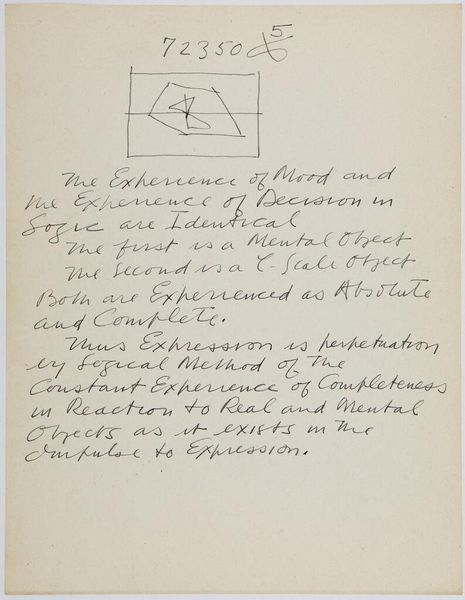 72350 5
The Experience of Mood and
the Experience of Decision in
Logic are Identical
The first is a Mental Object
The Second is a C-Scale Object
Both are Experienced as Absolute
and Complete.
Thus Expression is perpetuation
by Logical Method of The
Constant Experience of Completeness
in Reaction to Real and Mental
Objects as it exists in The
Impulse to Expression.